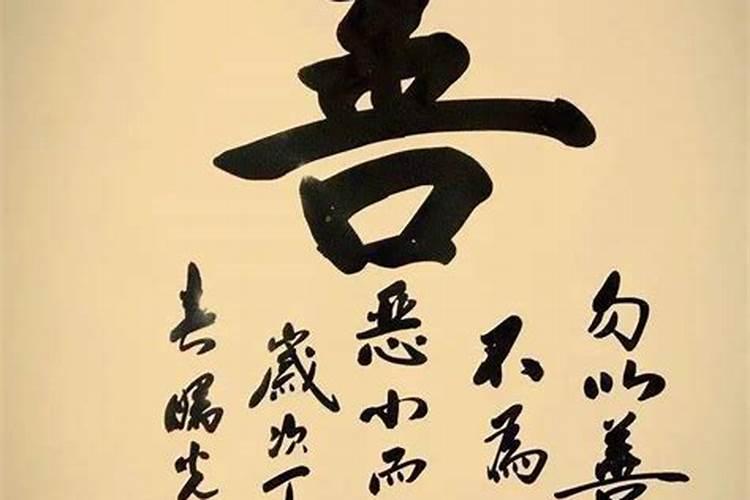 善
勿以善
不為
惡小而
歲次丁
春曙光